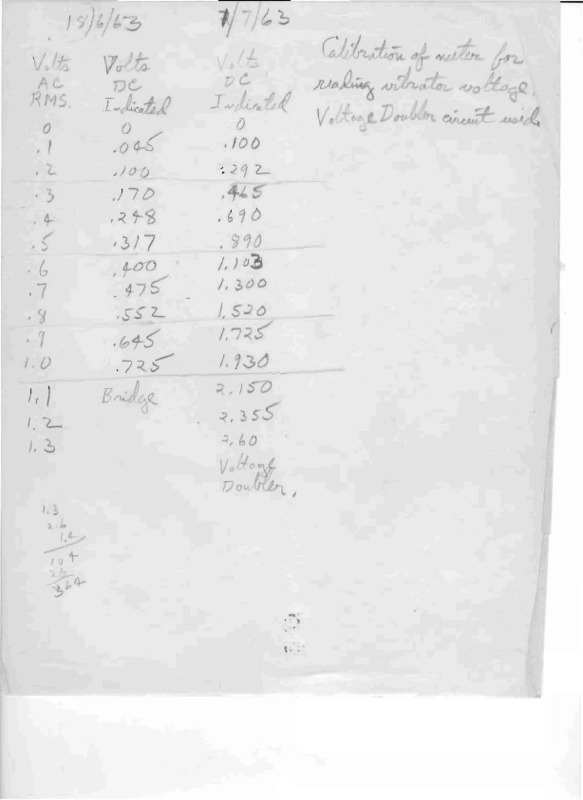 18/6/63 1/7/63
Calibration of meter for
reading vibrator voltage.
Voltage Doubler circuit used.
Volts Volts Volts
AC DC DC
RMS. Indicated Indicated
0 0 0
.1 .045 .100
.2 .100 .292
.3 .170 .465
.4 .248 .690
.5 .317 .890
.6 .400 1.103
.7 .475 1.300
.8 .552 1.520
.9 .645 1.725
1.0 .725 1.930
1.1 Bridge 2.150
1.2 2.355
1.3 2.60
Voltage
Doubler.
1.3
2.6
1.4
104
26
364